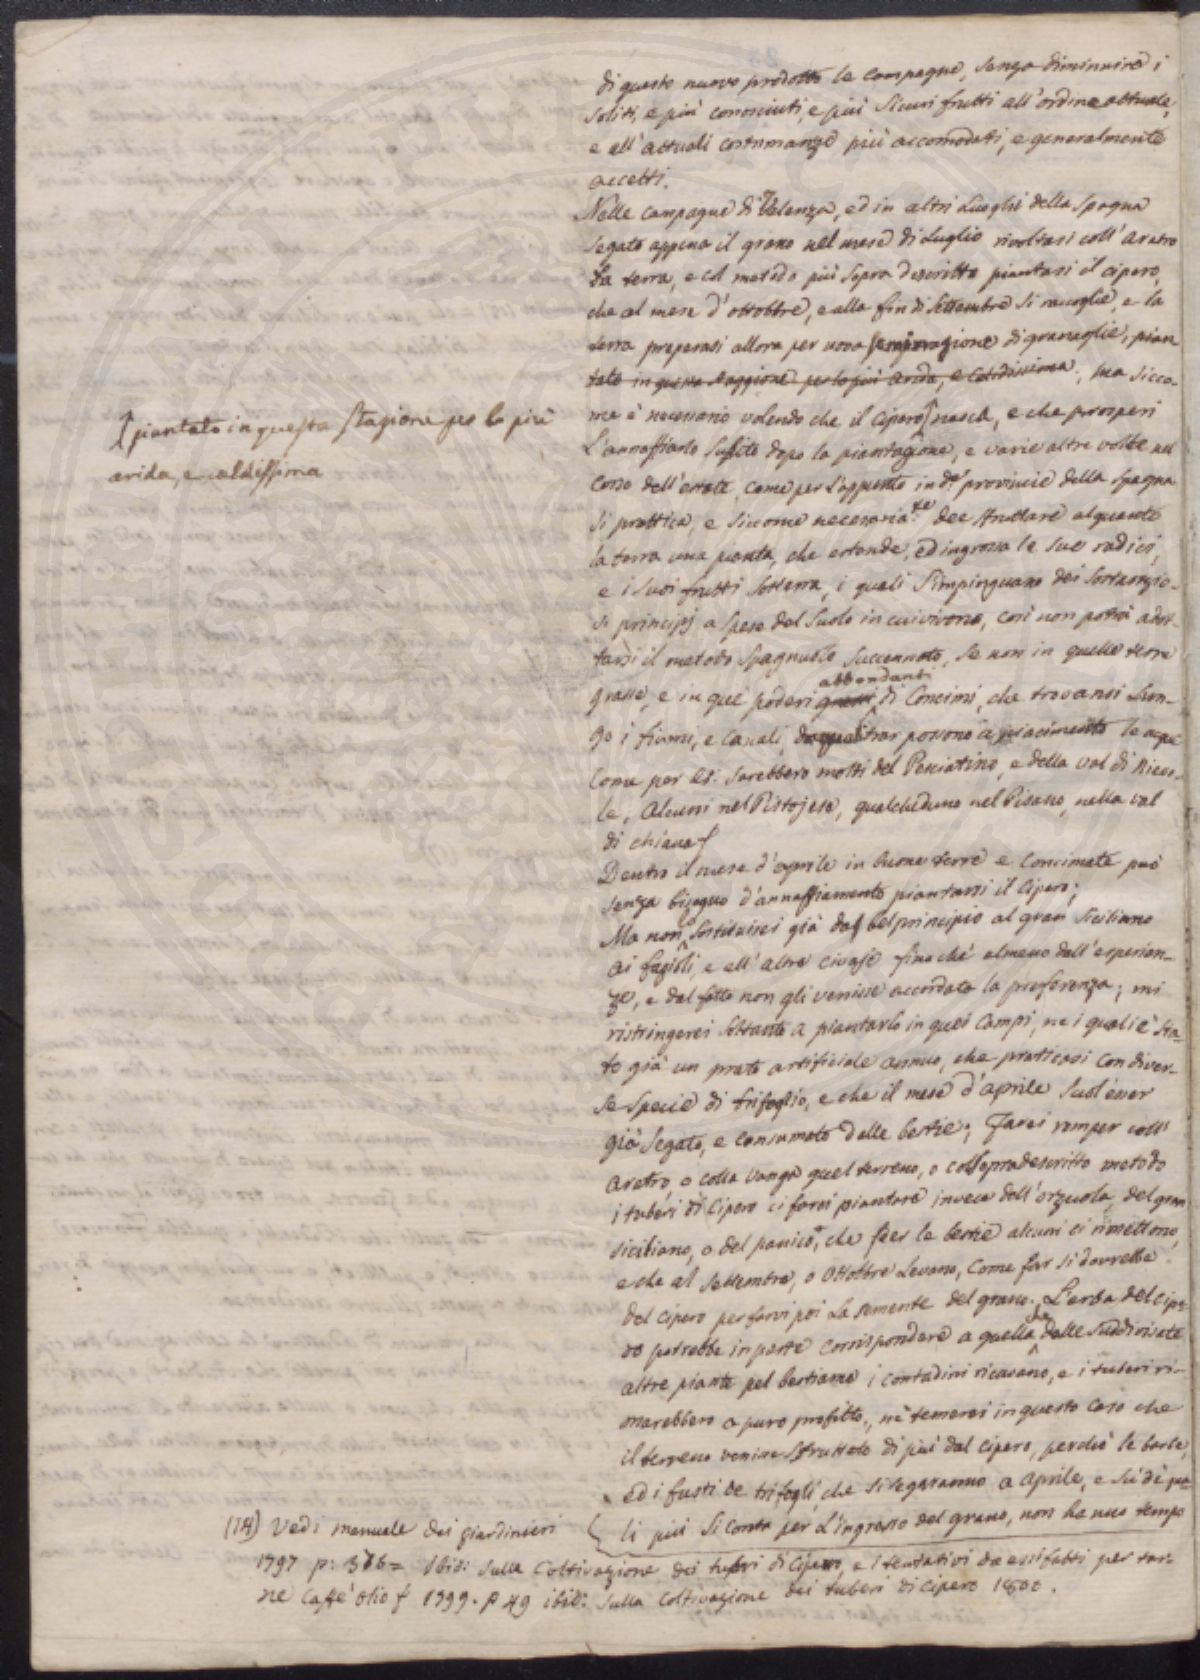 di questo nuovo prodotto le campagne, senza diminuire i
soliti, e più conosciuti, e più sicuri frutti all'ordine attuale,
e all'attuali costumanze più accomodati, e generalmente
accetti.
Nelle campagne di Valenza, ed in altri Luoghi della Spagna
segato appena il grano nel mese di Luglio rivoltasi coll'aratro
la terra, e col metodo più sopra descritto piantasi il cipero,
che al mese d'ottobre, e alla fin di Settembre si raccoglie, e la
terra preparasi allora per nova di granaglie, pian
tato in questa staggione per lo più arida, e caldissima; ma sicco-
me è necessario volendo che il cipero nasca, e che prosperi
L'annaffiarlo subito dopo la piantagione, e varie altre volte nel
corso dell'estate, come per l'appunto in de. provincie della Spagna
si prattica, e siccome necessaria.te dee sfruttare alquanto
la terra una pianta, che estende, ed ingrossa le sue radici,
e i suoi frutti sotterra, i quali s'impinguano dei sostanzio-
si principj a spese del suolo in cui vivono, così non potrà adot-
tarsi il metodo Spagnuolo succennato, se non in quelle terre
abbondanti
grasse, e in quei poderi di Concimi, che trovansi Lun-
go i fiumi, e canali, trar possono a piacimento le acque
Come per es: sarebbero molti del Pesciatino, e della val di Nievo-
le, Alcuni nel Pistojese, qualcheduno nel Pisano, nella val
di chiana
Dentro il mese d'aprile in buone terre e concimate può
senza bisogno d'annaffiamento piantarsi il cipero;
Ma non sostituirei già dal bel principio al gran siciliano
ai fagioli, e all'altre civaje finchè almeno dall'esperien-
ze, e dal fatto non gli venisse accordata la preferenza; mi
ristringerei soltanto a piantarlo in quei Campi, ne i quali è sta-
to già un prato artificiale annuo, che praticasi con diver-
se specie di trifoglio, e che il mese d'aprile suol'esser
già segato, e consumato dalle bestie; Farei romper coll'
aratro, o colla vanga quel terreno, o col sopradescritto metodo
i tuberi di Cipero ci farei piantare invece dell'orzuola, del gran
siciliano, o del panico, che per le bestie alcuni ci rimettono,
e che al settembre, o Ottobre Levano, come far si dovrebbe
del cipero per farvi poi La semente del grano. L'erba del cipe-
ro potrebbe in parte corrispondere a quella che dalle suddivisate
altre piante pel bestiame i contadini ricavano, e i tuberi ri-
marrebbero a puro profitto, nè temerei in questo caso che
il terreno venisse sfruttato di più dal cipero, perchè le barbe,
ed i fusti de trifogli, che si segaranno a aprile, e su dè qua-
li più si conta per l'ingrasso del grano, non hanno tempo
piantato in questa stagione per lo più
arida, e caldissima
(14) Vedi manuale dei giardinieri
1797 p: 376= Ibid: sulla Coltivazione dei tuberi di Cipero, e i tentativi da essi fatti per far-
ne Caffè olio 1799. p 49 ibid: sulla coltivazione dei tuberi di cipero 1800.